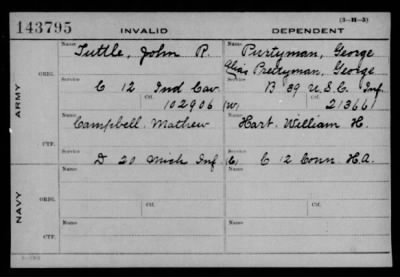 (3—M—3)
143795 INVALID DEPENDENT
Name Tuttle, John R. Name Purtyman, George
Alias Prettyman, George
ORIG. Service C 12 Ind Cav. Service B 39 U.S.C. Inf
Ctf. 102906 (W) Ctf. 21366
ARMY
Name Campbell, Mathew Name Hart, William H.
CTF. Service D 20 Mich Inf (C) Service C 12 Conn H.A.
Name Name
ORIG. Ctf. Ctf.
NAVY
Name Name
CTF.